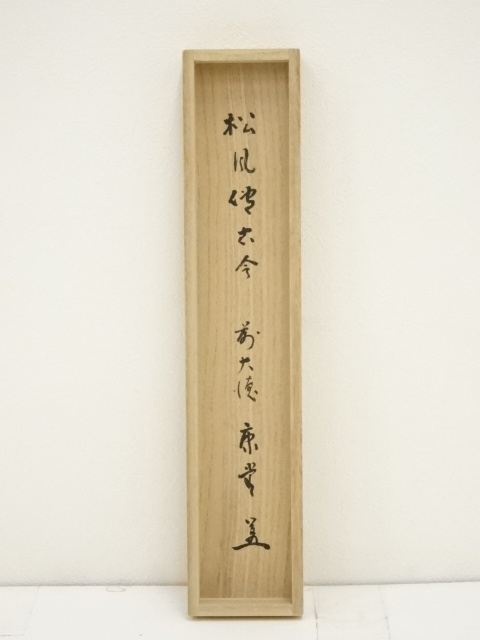 松風傳古今 前大德 康堂